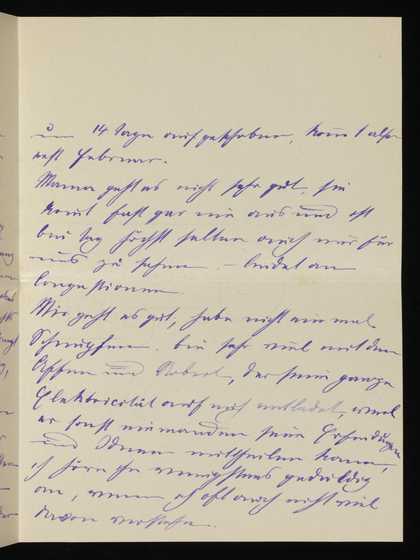 um 14 Tage aufgeschoben, kom̄t also
erst Februar.
Mama geht es nicht sehr gut, sie
kom̄t fast gar nie aus und ist
bei Tag höchst selten auch nur für
uns zu sehen. – leidet an
Congestionen
Mir geht es gut, habe nicht einmal
Schnupfen. bin sehr viel mit dem
Affen und Robert, der seine ganze
Elektricität auf mich entladet, weil
er sonst niemanden seine Erfindungen
und Ideen mittheilen kann,
ich höre ihm wenigstens geduldig
an, wenn ich oft auch nicht viel
davon verstehe.